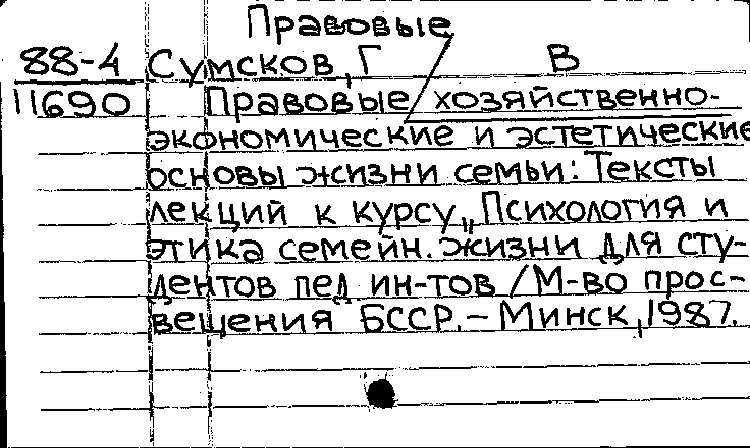 Правовые
88-4 Сумсков, Г В
11690 Правовые/хозяйственно-
экономические и эстетические
основы жизни семьи: Тексты
лекций к курсу „Психология и
этика семейн. жизни для сту-
дентов пед ин-тов /М-во прос-
вещения БССР. – Минск, 1987.